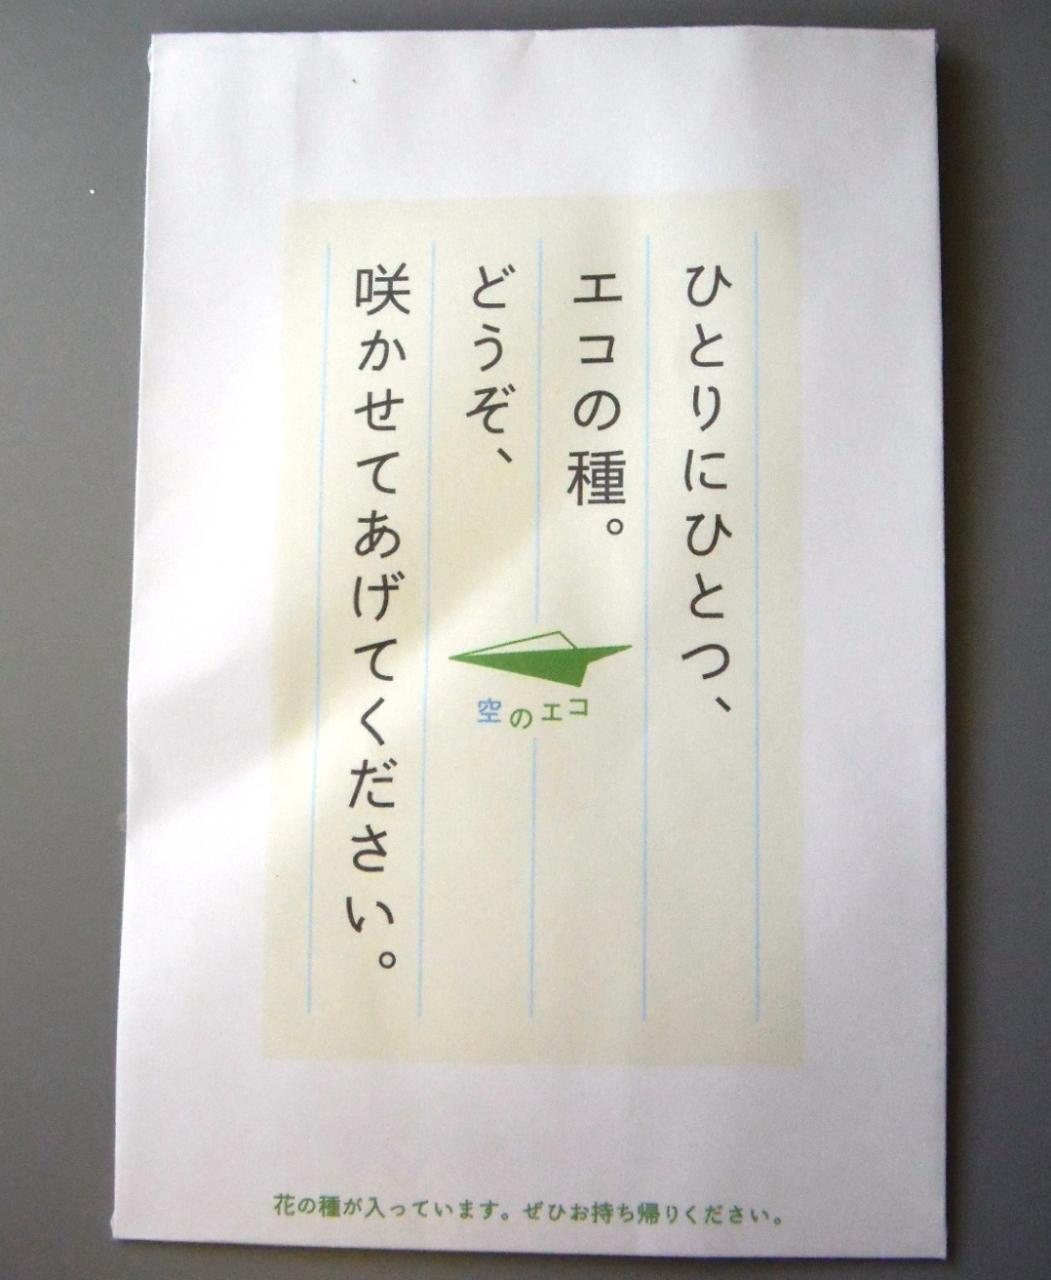 ひとりにひとつ、
エコの種。
どうぞ、
咲かせてあげてください。
空のエコ
花の種が入っています。ぜひお持ち帰りください。